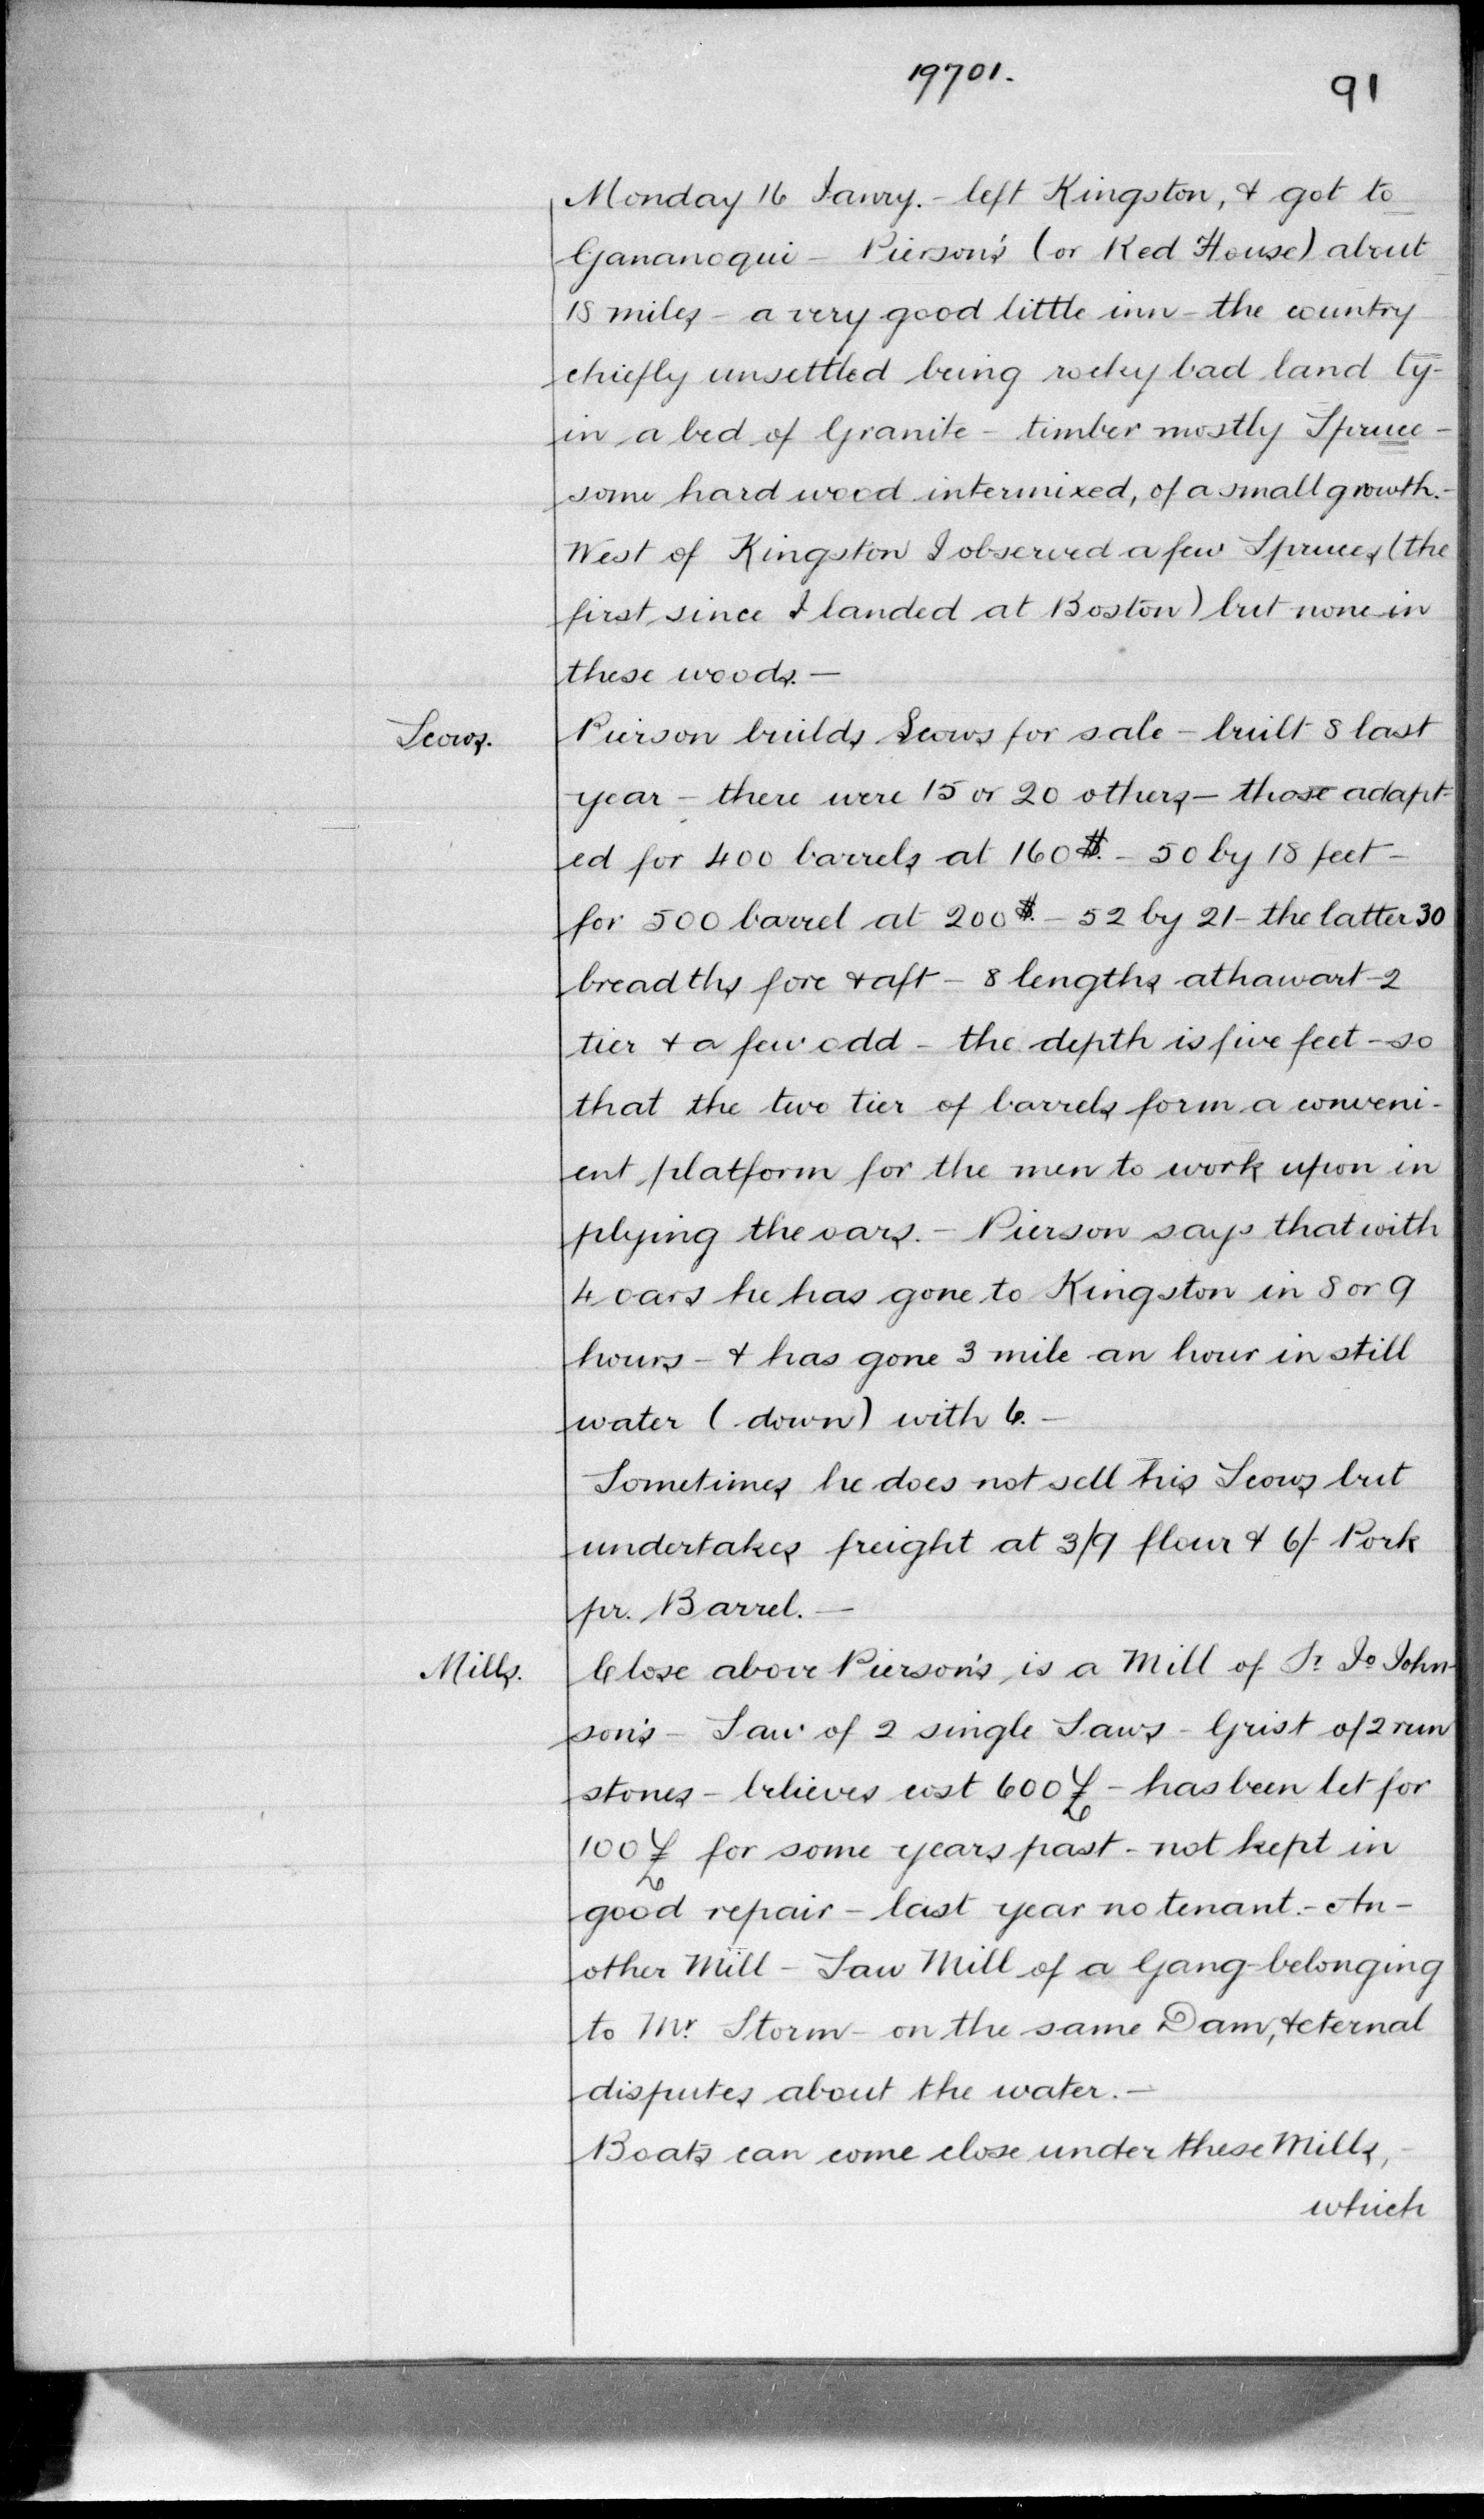 19701.
91
Monday 16 Janry. - left Kingston, & got to
Gananoqui - Pierson's (or Red House) about
18 miles - a very good little inn - the country
chiefly unsettled being rocky bad land ly-
in a bed of Granite - timber mostly Spruce -
some hard wood intermixed, of a small growth. -
West of Kingston I observed a few Spruces (the
first since I landed at Boston) but none in
these woods. -
Scows.
Pierson builds Scows for sale - built 8 last
year - there were 15 or 20 others - those adapt-
ed for 400 barrels at 160 $. - 50 by 18 feet -
for 500 barrel at 200 $. - 52 by 21 - the latter 30
breadths fore & aft - 8 lengths athawart - 2
tier & a few odd - the depth is five feet - so
that the two tier of barrels form a conveni-
ent platform for the men to work upon in
plying the oars. - Pierson says that with
4 oars he has gone to Kingston in 8 or 9
hours - & has gone 3 mile an hour in still
water (down) with 6. -
Sometimes he does not sell his Scows but
undertakes freight at 3/9 flour & 6/- Pork
pr. Barrel. -
Mills.
Close above Pierson's is a Mill of Sr. Jo John-
son's - Saw of 2 single Saws - Grist of 2 run
stones - believes cost 600 £ - has been let for
100 £ for some years past - not kept in
good repair - last year no tenant. - An-
other Mill - Saw Mill of a Gang - belonging
to Mr. Storm - on the same Dam, & eternal
disputes about the water. -
Boats can come close under these Mills, -
which